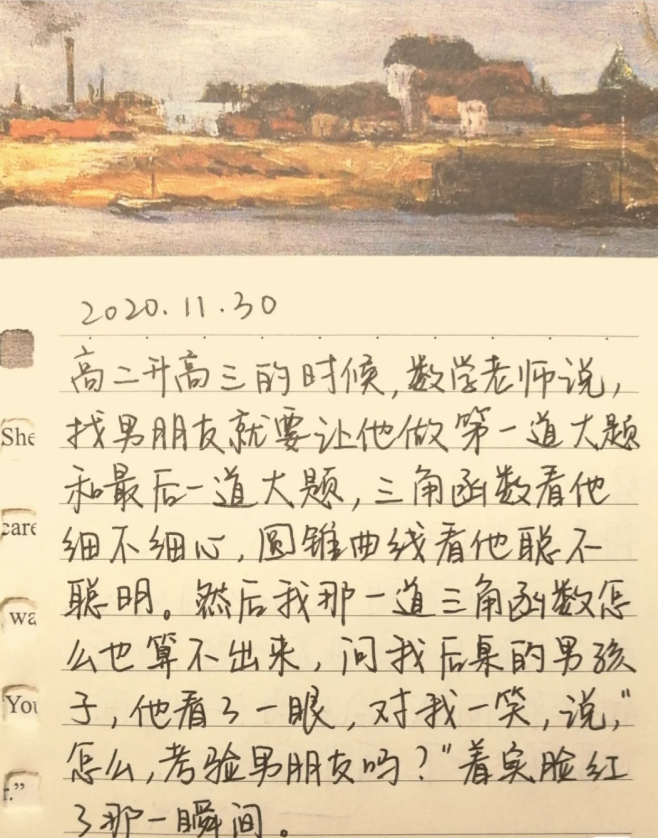 2020.11.30
高二升高三的时候,数学老师说,
找男朋友就要让他做第一道大题
She
和最后一道大题,三角函数看他
care
细不细心,圆锥曲线看他聪不
聪明。然后我那一道三角函数怎
wa
么也算不出来,问我后桌的男孩
You
子,他看了一眼,对我一笑,说,"
怎么,考验男朋友吗?"着实脸红
."
了那一瞬间。